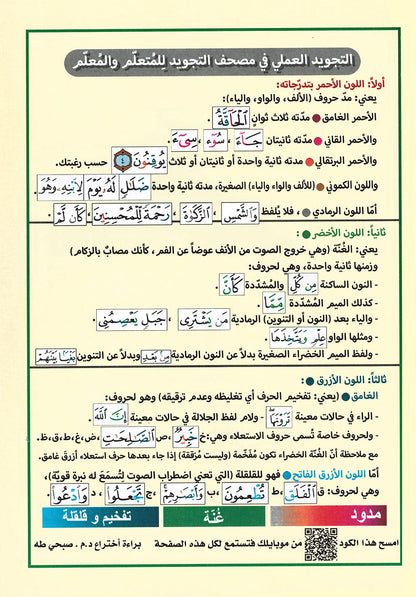 التجويد العملي في مصحف التجويد للمُتعلّم والمُعلّم
أولاً: اللون الأحمر بتدرّجاته:
يعني: مدّ حروف (الألف، والواو، والياء):
الأحمر الغامق مدّته ثلاث ثوانٍ ٱلْحَاقَّةُ
والأحمر القاني مدته ثانيتان جَآءَ ، سُوٓءَ ، سِيٓءَ .
والأحمر البرتقالي مدته ثانية واحدة أو ثانيتان أو ثلاث يُوقِنُونَ ٤ حسب رغبتك.
واللون الكموني (للألف والواو والياء) الصغيرة، مدته ثانية واحدة ضَلَٰلٍ لَهُۥ يَوْمَ لِأَبِيهِ وَهُوَ .
أمّا اللون الرمادي ، فلا يُلفظ وَٱلشَّمْسِ ، ٱلزَّكَوٰةَ ، رَحْمَةً لِّلْمُحْسِنِينَ ، كَأَن لَّمْ .
ثانياً: اللون الأخضر :
يعني: الغُنّة (وهي خروج الصوت من الأنف عوضاً عن الفم، كأنك مصابٌ بالزكام)
وزمنها ثانية واحدة، وهي لحروف:
- النون الساكنة مِن كُلِّ والمُشدّدة كَأَنَّ .
- كذلك الميم المشددة مِّمَّا .
- والياء بعد (النون أو التنوين) الرمادية مَن يَشْتَرِى ، جَبَلٍ يَعْصِمُنِى .
- ومثلها الواو عِلْمٍ وَيَتَّخِذَهَا .
- ولفظ الميم الخضراء الصغيرة بدلاً عن النون الرمادية مِنۢ بَعْدِ وبدلاً عن التنوين بَغْيًۢا بَيْنَهُمْ
ثالثاً: اللون الأزرق :
الغامق (يعني: تفخيم الحرف أي تغليظه وعدم ترقيقه) وهو لحروف:
- الراء في حالات معينة تَرَوْنَهَا . - ولام لفظ الجلالة في حالات معينة إِنَّ ٱللَّهَ .
- ولحروف خاصة تُسمى حروف الاستعلاء وهي: خ خَبِيرٌ ، ص ٱلصَّٰلِحَٰتِ ، ض، غ، ط، ق، ظ.
مع ملاحظة أنّ الغُنّة الخضراء تكون مُفخّمة (وليست مُرَقّقة) إذا جاء بعدها حرف استعلاء أزرق غامق.
أمّا اللون الأزرق الفاتح فهو للقلقلة (التي تعني اضطراب الصوت لِتُسمَع له نبرة قوية)،
وهي لحروف: ق ٱلْفَلَقِ ط تُطْعِمُونَ ، ب وَأَبْصَٰرِهِمْ ، ج تَجْعَلُوا۟ ، د وَٱدْعُوا۟ .
مدود
غُنّة
تفخيم و قلقلة
امسح هذا الكود من موبايلك فتستمع لكل هذه الصفحة براءة أختراع د.م . صبحي طه